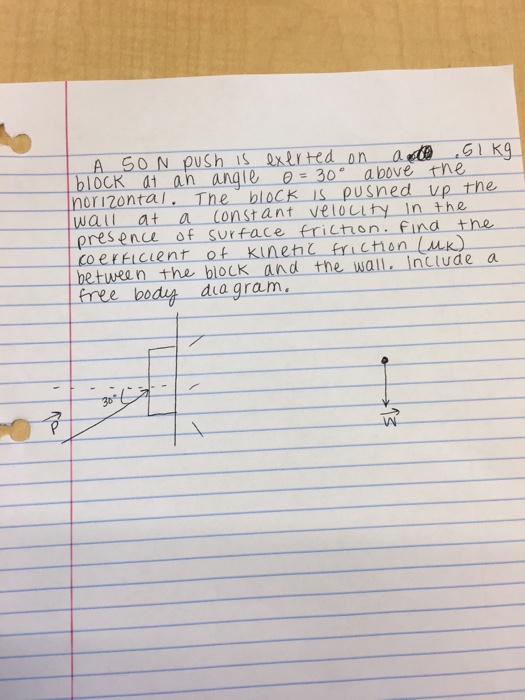 A 50 N push is exerted on a .51 kg
block at an angle θ = 30° above the
horizontal. The block is pushed up the
wall at a constant velocity in the
presence of surface friction. Find the
coefficient of kinetic friction (μK)
between the block and the wall. Include a
free body diagram.
30°
P
W